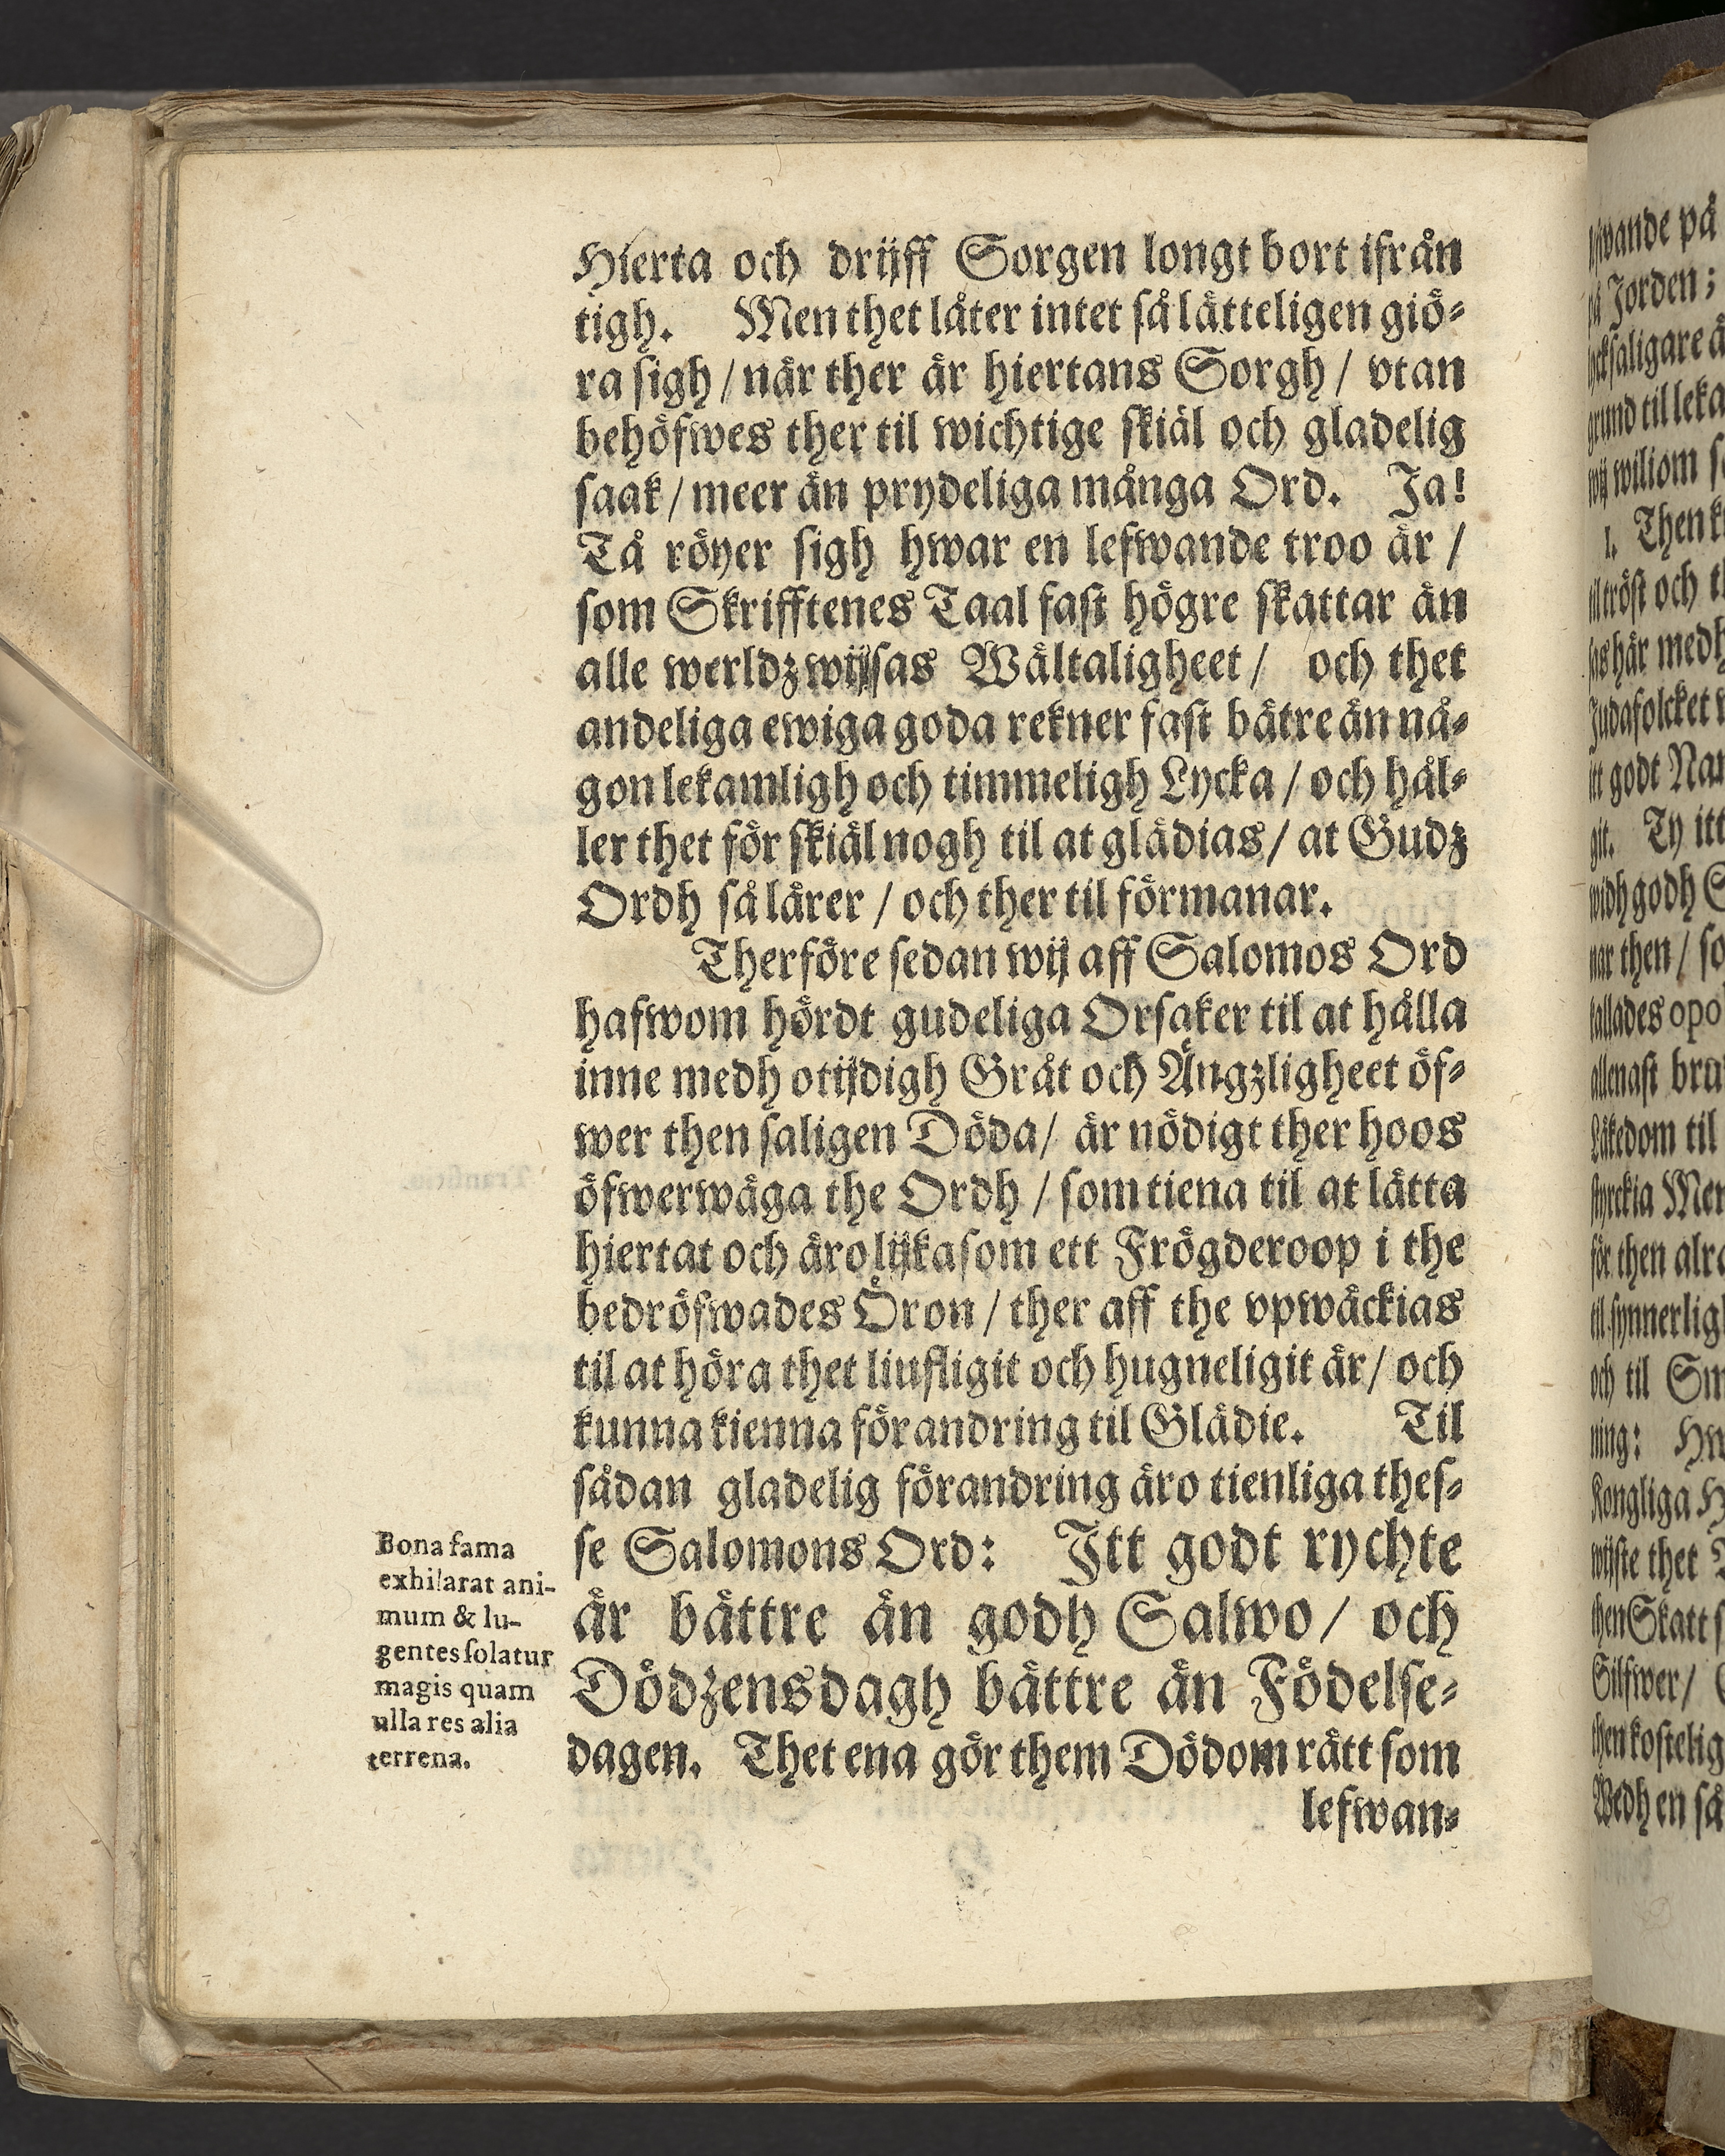 Hierta och drijff Sorgen longt bort ifrån
tigh. Men thet låter intet så lätteligen giö⸗
ra sigh / när ther är hiertans Sorgh / vtan
behöfwes ther til wichtige skiäl och gladelig
saak / meer än prydeliga många Ord. Ja!
Tå röyer sigh hwar en lefwande troo är /
som Skrifftenes Taal fast högre skattar än
alle werldz wijsas Wältaligheet / och thet
andeliga ewiga goda rekner fast bätre än nå⸗
gon lekamligh och timmeligh Lycka / och hål⸗
ler thet för skiäl nogh til at glädias / at Gudz
Ordh så lärer / och ther til förmanar.
Therföre sedan wij aff Salomos Ord
hafwom hördt gudeliga Orsaker til at hålla
inne medh otijdigh Gråt och Ängzligheet öf⸗
wer then saligen Döda / är nödigt ther hoos
öfwerwäga the Ordh / som tiena til at lätta
hiertat och äro lijka som ett Frögderoop i the
bedröfwades Öron / ther aff the vpwäckias
til at höra thet liufligit och hugneligit är / och
kunna kienna förandring til Glädie. Til
sådan gladelig förandring äro tienliga thes⸗
se Salomons Ord: Itt godt rychte
är bättre än godh Salwo / och
Dödzens dagh bättre än Födelse⸗
dagen. Thet ena gör them Dödom rätt som
lefwan⸗
Bona fama
exhilarat ani-
mum & lu-
gentes solatur
magis quam
ulla res alia
terrena.
wande på
Jorden;
saligare ä
grund til leka
wiliom
1. Then
til tröst och
här medh
Judafolcket
itt godt
git. Ty itt
widh godh
nar then / so
kallades opo
allenast bru
Läkedom til
styrckia
för then alra
til synnerligh
och til
ning:
Kongliga
wijste thet
then Skatt
Silfwer /
then kostelig
Wedh en så